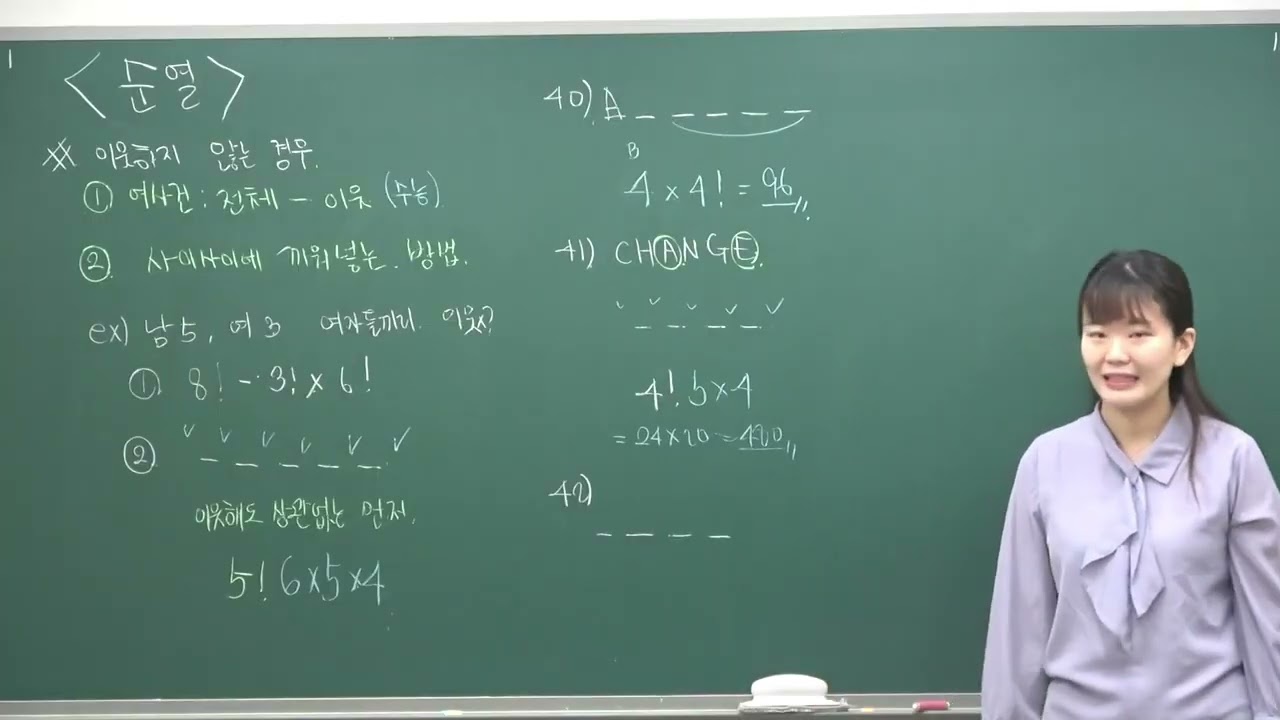 <순열>
※ 이웃하지 않는 경우.
① 여사건 : 전체 - 이웃 (수능)
② 사이사이에 끼워넣는 방법.
ex) 남5, 여3 여자들끼리 이웃X?
① 8! - 3! × 6!
② ✓ ✓ ✓ ✓ ✓ ✓
_ _ _ _ _
이웃해도 상관없는 먼저.
5! 6×5×4
40) A _ _ _ _ _
B
4 × 4! = 96
41) CHANGE.
✓ ✓ ✓ ✓ ✓
_ _ _ _
4! 5×4
= 24×20 = 480
42)
_ _ _ _